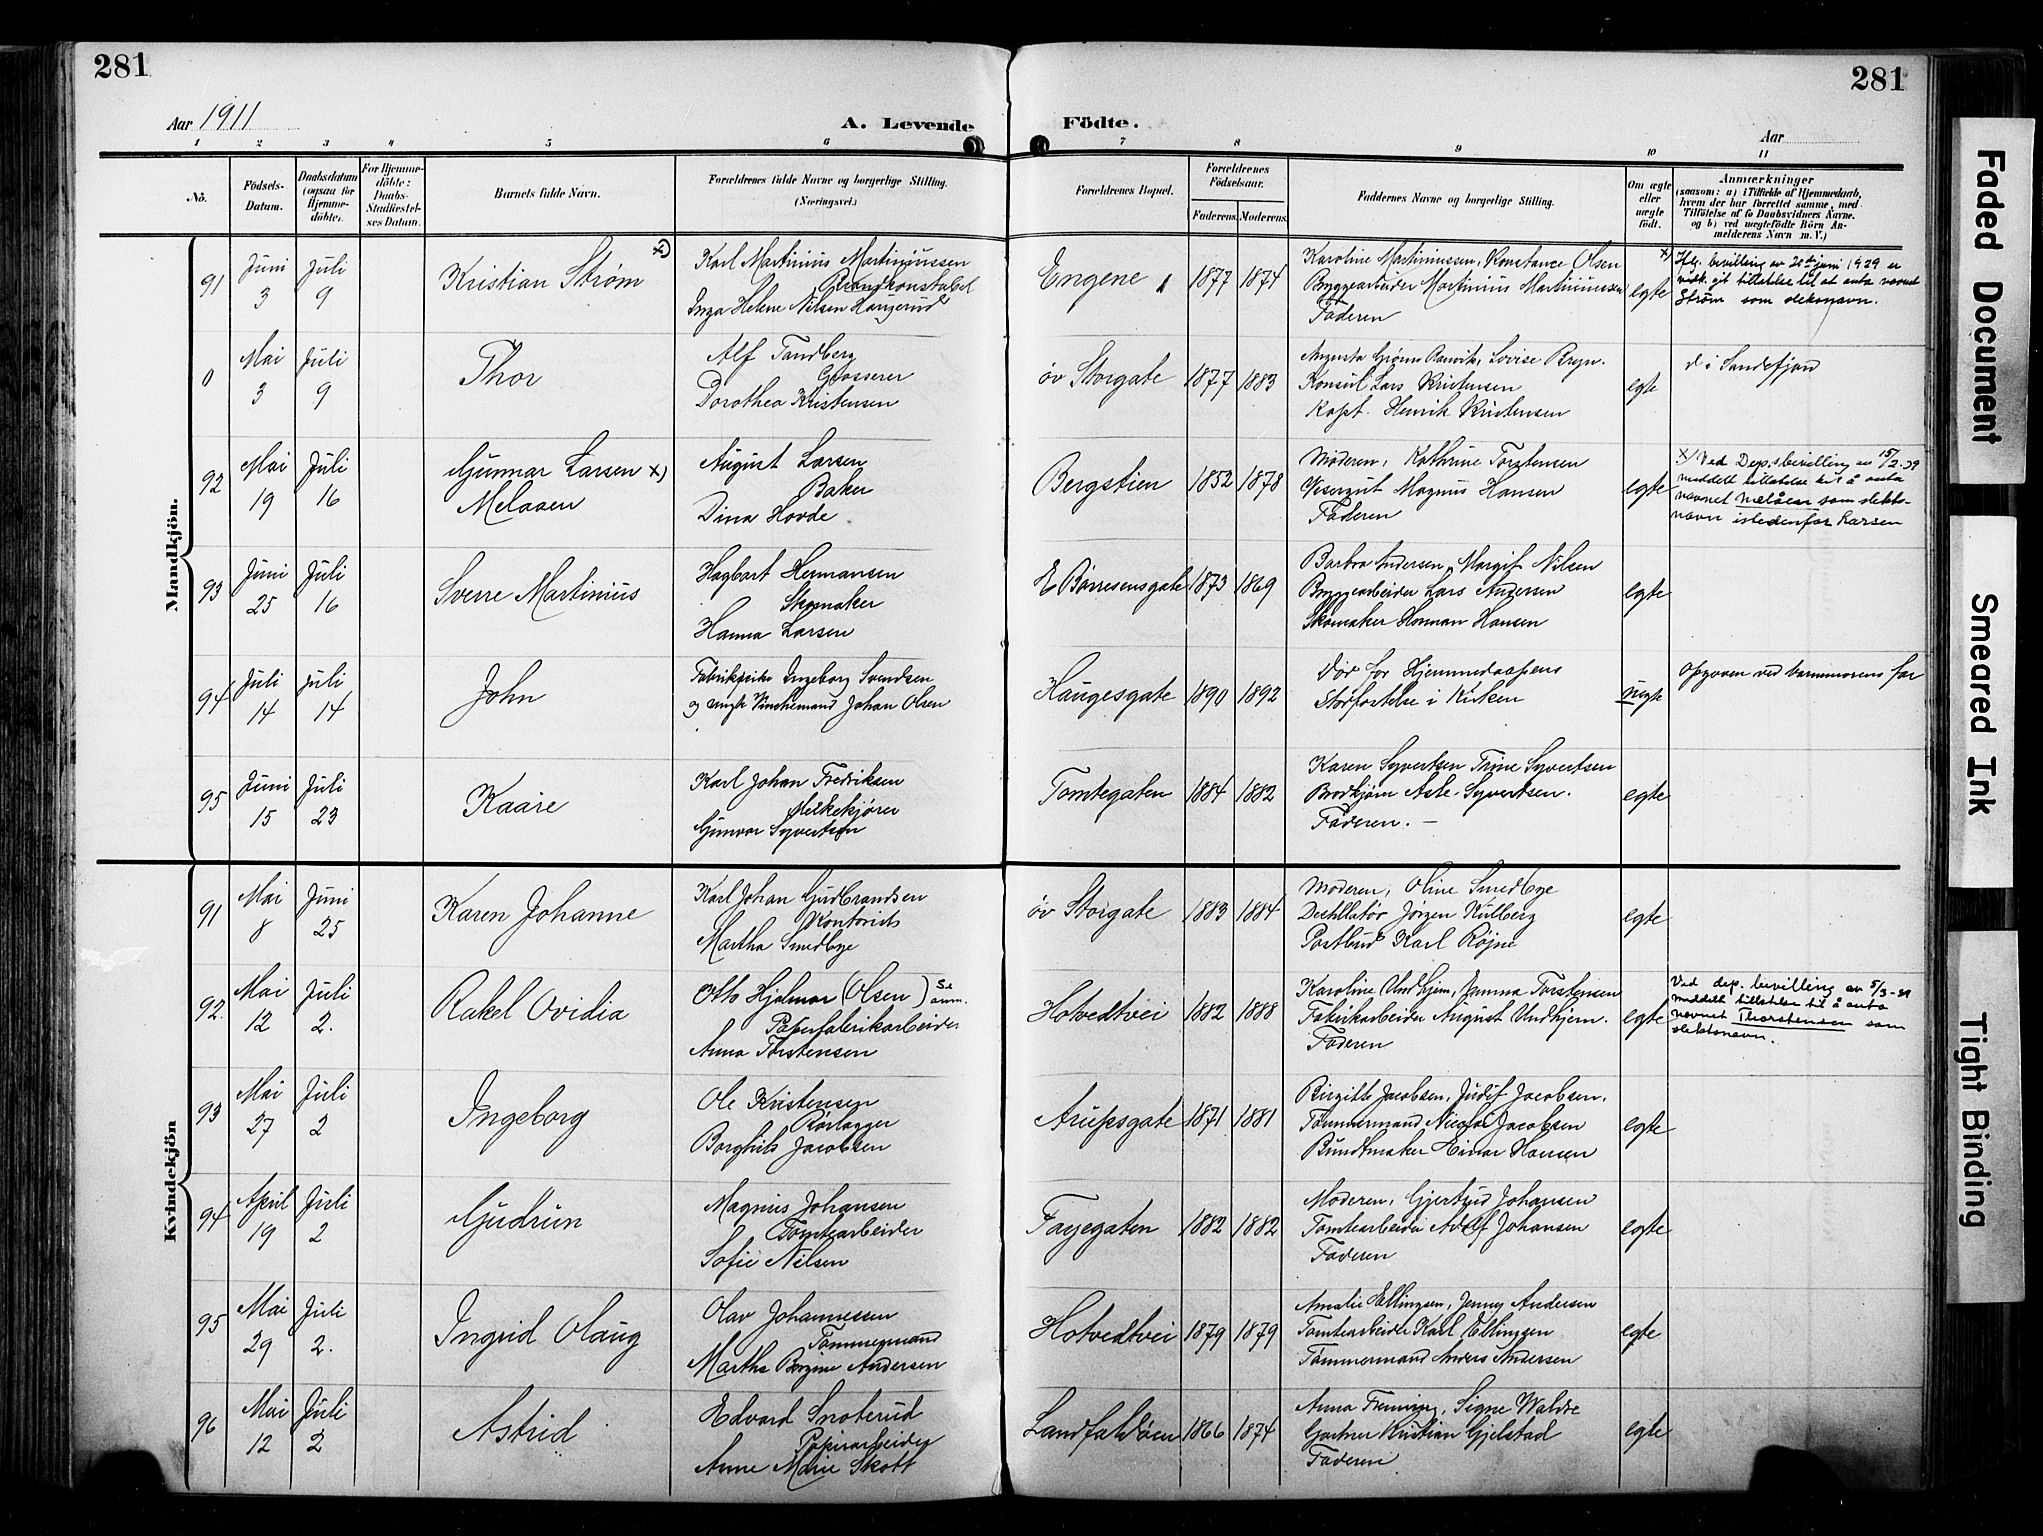 281
281
Aar 1911
A. Levende Födte.
Aar
1 2 3 4 5 6 7 8 9 10 11
No.
Födsels-Datum.
Daabsdatum (ogsaa for Hjemme-döbte).
For Hjemme-döbte: Daabs-Stadfæstel-ses Datum.
Barnets fulde Navn.
Forældrenes fulde Navne og borgerlige Stilling.
(Næringsvei.)
Forældrenes Bopæl.
Forældrenes Födselsaar.
Faderens. Moderens.
Faddernes Navne og borgerlige Stilling.
Om ægte eller uægte födt.
Anmærkninger
(saasom: a) i Tilfælde af Hjemmedaab,
hvem der har forrettet samme, med
Tilföielse af to Daabsvidners Navne,
og b) ved uægtefödte Börn An-
melderens Navn m. V.)
Mandkjön.
91 Juni 3 Juli 9 Kristian Strøm x)
Karl Martinius Martiniussen
Brandkonstabel
Inga Helene Nilsen Haugerud
Engene 1877 1874
Karoline Martiniussen, Konstance Olsen
Bryggearbeider Martinius Martiniussen
Faderen
egte
x) Kgl. bevilling av 20de juni 1929 er
medk. git tillatelse til at anta navnet
Strøm som slektsnavn.
0 Mai 3 Juli 9 Thor
Alf Tandberg
Grosserer
Dorothea Kristensen
öv Storgate 1877 1883
Augusta Grønn Ranvik, Lovise Bryn.
Konsul Lars Kristensen
Kapt. Henrik Kristensen
egte
d i Sandefjord
92 Mai 19 Juli 16 Gunnar Larsen x)
Melaaen
August Larsen
Baker
Dina Hovde
Bergstien 1852 1878
Moderen, Kathrine Torstensen
Visergut Magnus Hansen
Faderen
egte
x) Ved Dep.sbevilling av 15/2-39
meddelt tillatelse til å anta
navnet Melåen som slekts-
navn istedenfor Larsen
93 Juni 25 Juli 16 Sverre Martinius
Hagbart Hermansen
Skomaker
Hanna Larsen
E Børresensgate 1873 1869
Barbra Andersen, Margit Nilsen
Bryggearbeider Lars Andersen
Skomaker Herman Hansen
egte
94 Juli 14 Juli 14 John
Fabrikpike Ingeborg Svendsen
og ungk Vinchemand Johan Olsen
Haugesgate 1890 1892
Död før Hjemmedaapens
Stadfæstelse i Kirken
uegte
Opgoven ved barnmorens far
95 Juni 15 Juli 23 Kaare
Karl Johan Fredriksen
Melkekjører
Gunvor Syvertsen
Tomtegaten 1884 1882
Karen Syvertsen Trine Syvertsen
Brødkjører Asle Syvertsen.
Faderen. —
egte
Kvindekjön
91 Mai 8 Juni 25 Karen Johanne
Karl Johan Gudbrandsen
Kontorist
Martha Smedbye
öv Storgate 1883 1884
Moderen, Oline Smedbye
Destillatør Jörgen Kulberg
Postbud Karl Røjne
egte
92. Mai 12 Juli 2. Rakel Ovidia
Otto Hjalmar (Olsen) Se anm.
Papirfabrikarbeider
Anna Torstensen
Hotvedtvei 1882 1888
Karoline Undhjem, Jamma Torstensen
Fabrikarbeider August Undhjem.
Faderen
egte
Ved dep. bevilling av 5/3-39
meddelt tillatelse til å anta
navnet Thorstensen som
slektsnavn.
93 Mai 27 Juli 2 Ingeborg
Ole Kristensen
Rørlægger
Borghild Jacobsen
Arupsgate 1871 1881
Birgitte Jacobsen, Judit Jacobsen.
Tømmermand Nicolai Jacobsen
Bundtmaker Einar Hansen
egte
94 April 19 Juli 2 Gudrun
Magnus Johansen
Tomtearbeider
Sofie Nilsen
Fayegaten 1882 1882
Moderen, Gjertrud Johansen
Tomtearbeider Adolf Johansen
Faderen
egte
95 Mai 29 Juli 2. Ingrid Olaug
Olav Johannessen
Tømmermand
Martha Bergine Andersen
Hotvedtvei 1879 1879
Amalie Ellingsen, Jenny Andersen
Tomtearbeider Karl Ellingsen
Tømmermand Anders Andersen
egte
96 Mai 12 Juli 2 Astrid
Edvard Snoterud
Papirarbeider
Anne Marie Skott
Landfaldöen 1866 1874
Anna Fremming, Signe Waldre
Gartner Kristian Gjelstad
Faderen
egte
Faded Document
Smeared Ink
Tight Binding